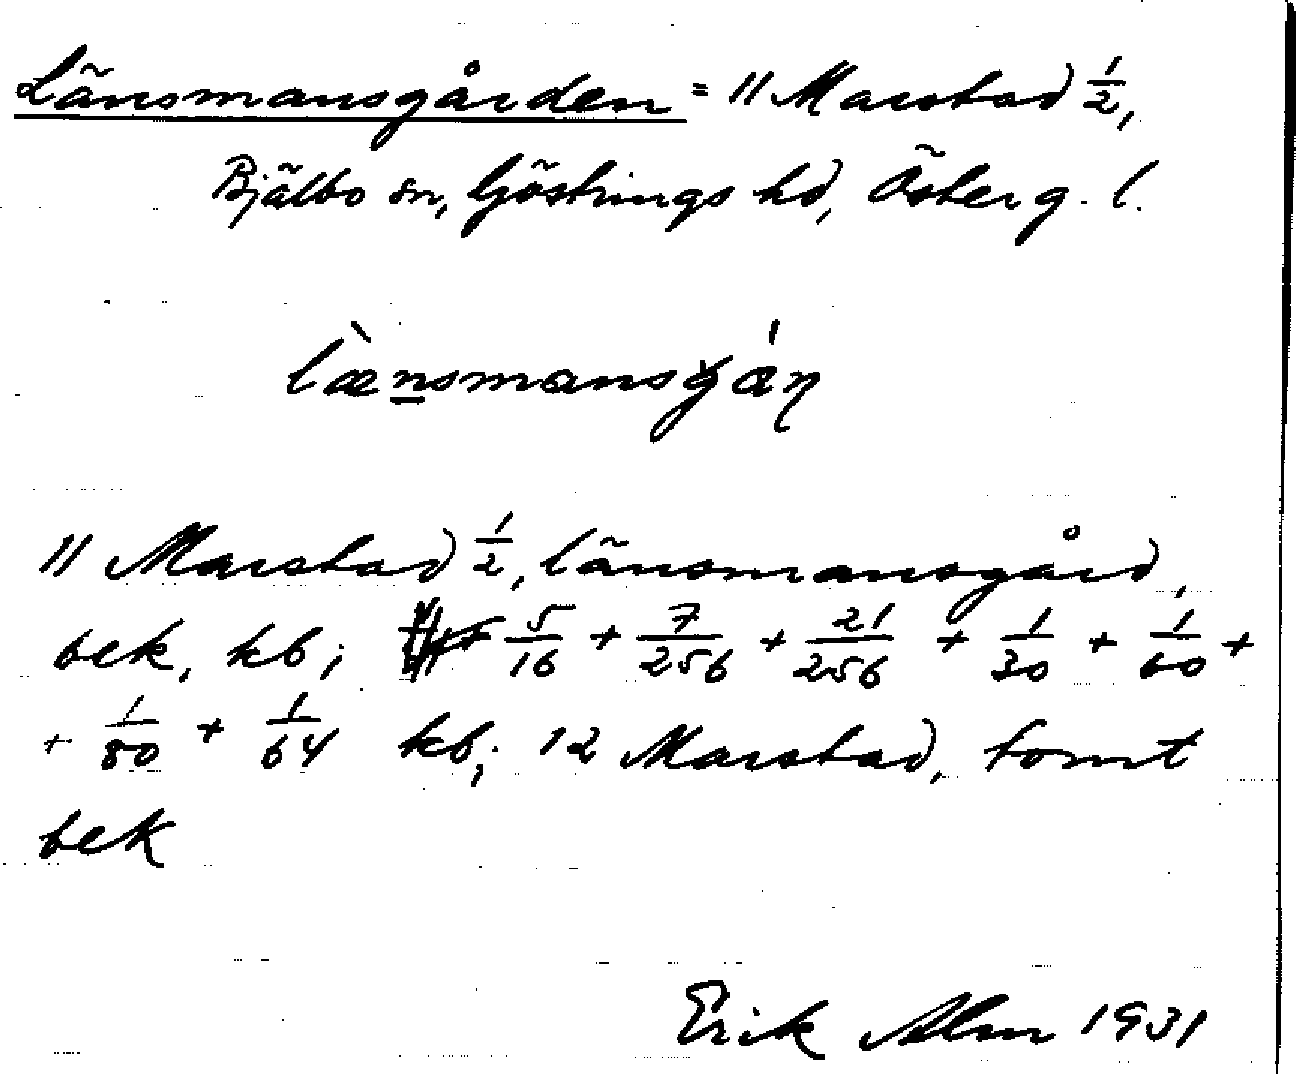 Länsmansgården = 11 Marstad 1/2,
Bjälbo sn, Göstrings hd, Österg. l.
læ̀nsmansgáṇ
11 Marstad 1/2, länsmansgård,
bek, kb; 5/16 + 7/256 + 21/256 + 1/30 + 1/60 +
+ 1/80 + 1/64 kb; 12 Marstad, tomt
bek
Erik Alm 1931